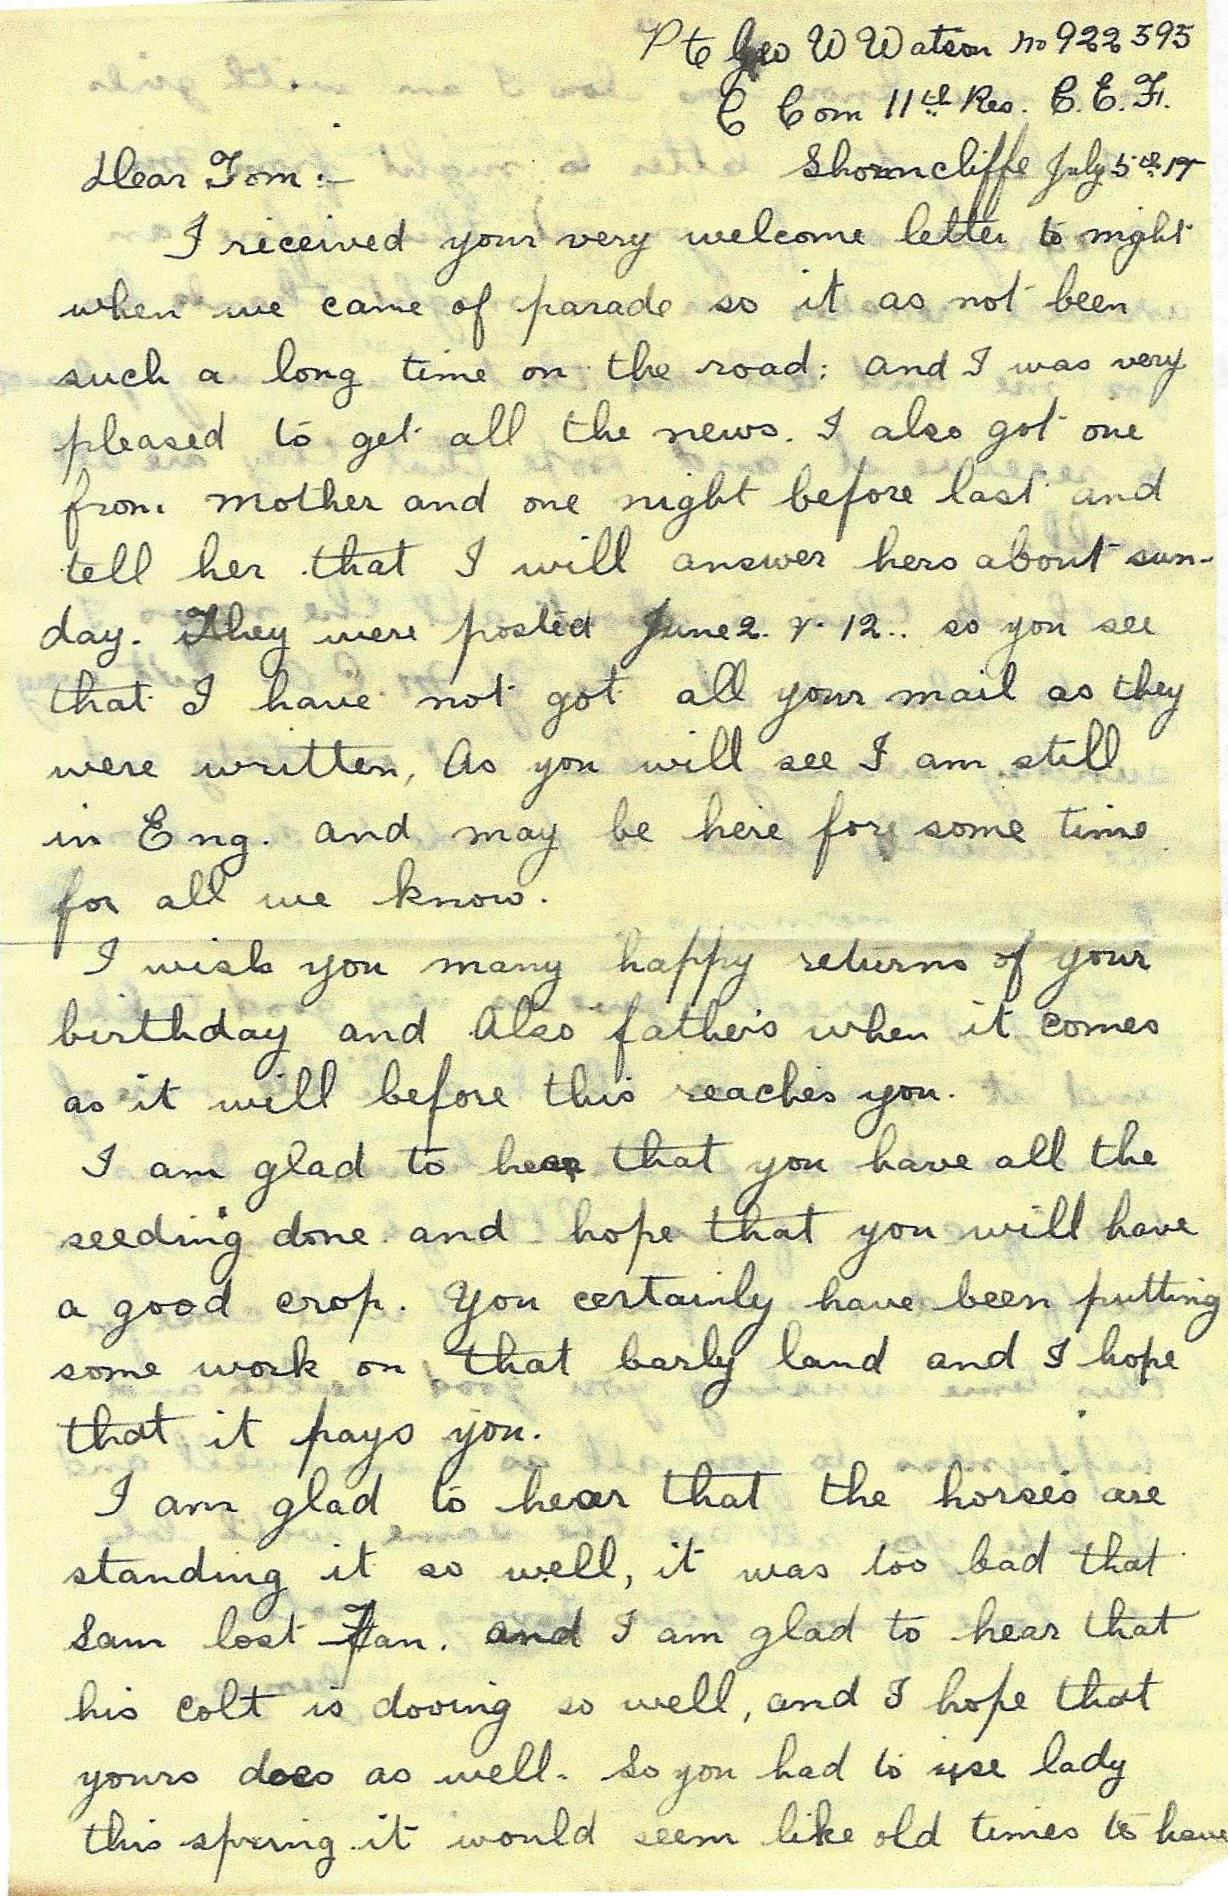 Pte Geo W Watson no 922595
C Com 11th Res. C.E.F.
Shorncliffe July 5th 17
Dear Tom:-
I received your very welcome letter to night
when we came of parade so it as not been
such a long time on the road; and I was very
pleased to get all the news. I also got one
from mother and one night before last and
tell her that I will answer hers about sun-
day. They were posted June 2. & 12.. so you see
that I have not got all your mail as they
were written, As you will see I am still
in Eng. and may be here for some time
for all we know.
I wish you many happy returns of your
birthday and Also father's when it comes
as it will before this reaches you.
I am glad to hear that you have all the
seeding done and hope that you will have
a good crop. You certainly have been putting
some work on that barly land and I hope
that it pays you.
I am glad to hear that the horses are
standing it so well, it was too bad that
Sam lost Fan. and I am glad to hear that
his colt is dooing so well, and I hope that
yours does as well. So you had to use lady
this spring it would seem like old times to have